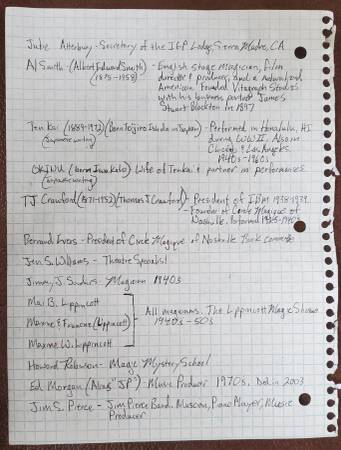 Jube Atterbury - Secretary of the IGP Lodge, Sierra Madre, CA
Al Smith - (Albert Edward Smith) - English stage magician, film
(1875-1958) director & producer, and a naturalized
American. Founded Vitagraph Studios
with his business partner James
Stuart Blackton in 1897
Ten Kai (1889-1972) (Born Teijiro Ishida in Japan) - Performed in Honolulu, HI
(Japanese writing) during WWII. Also in
Chicago & Los Angeles
1940s-1960s.
OKINU (born Kato) Wife of Tenkai & partner in performances
(Japanese writing)
TJ Crawford (1871-1952) (Thomas J Crawford) - President of IBM 1938-1939.
- Founder of Circle Magique of
Nashville. Performed 1940s.
Bernard Ivers - President of Circle Magique of Nashville
Jen S. Williams - Theatre Specials!
Jimmy J. Sanders - Magician 1940s
Mal B. Lippincott
Maxine & Francine (Lippincott) All magicians. The Lippincott Magic Shows
1940s-50s
Maxine W. Lippincott
Howard Robinson - Magic Mystery School
Ed Morgan (Alias "JP") - Music Producer 1970s. Died in 2003
Jim S. Pierce - Jim Pierce Band. Musician, Piano Player, Music
Producer